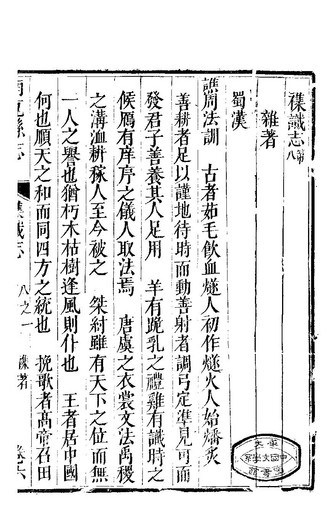 襍識志第八
雜著
蜀漢
譙周法訓　古者茹毛飲血燧人初作燧火人始燔炙
善耕者足以謹地待時而動善射者調弓定準見可而
發君子善養其人足用　羊有跪乳之禮雞有識時之
候鴈有庠序之儀人取法焉　唐虞之衣裳文法禹稷
之溝洫耕稼人至今被之　桀紂雖有天下之位而無
一人之譽也猶朽木枯樹逢風則仆也　王者居中國
何也順天之和而同四方之統也　挽歌者高帝召田
縣志
襍識志
八之一
襍著
卷六